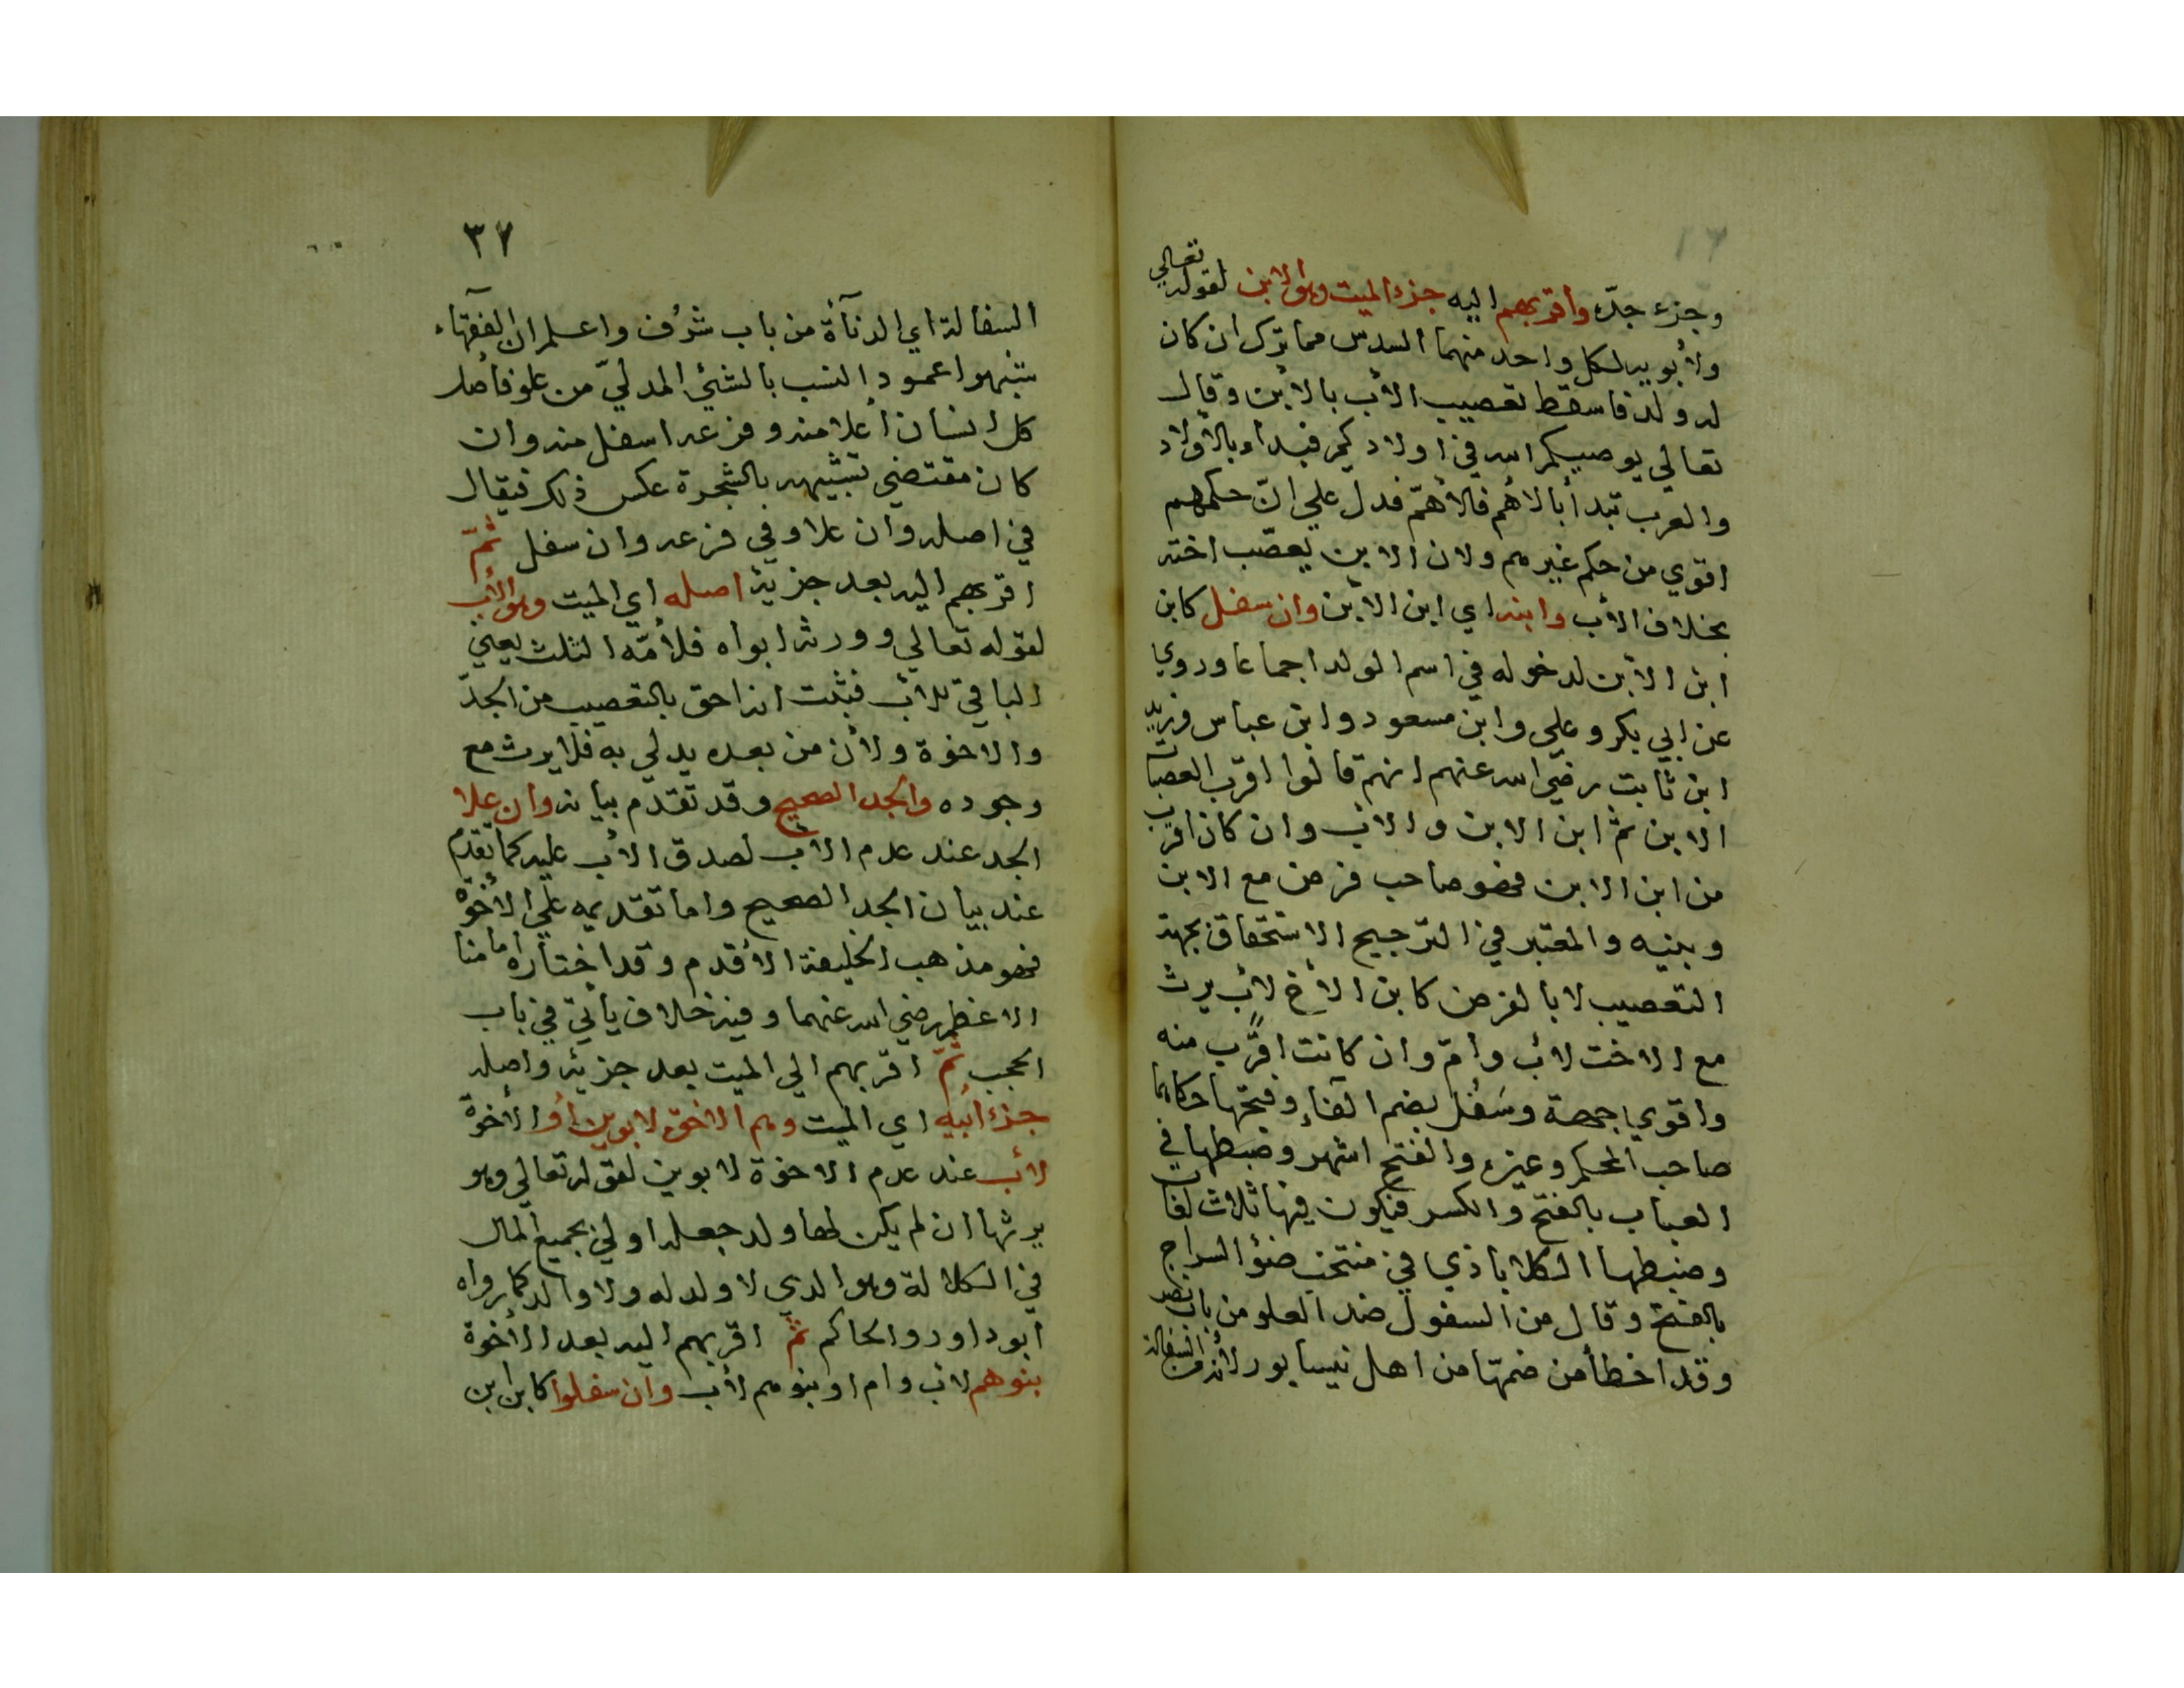 وجزء جدّه وأقربهم اليه جزء الميت وهو الابن لقوله تعالي
ولأبويه لكل واحد منهما السدس مما ترك ان كان
له ولد فاسقط تعصيب الأب بالأبن وقال
تعالي يوصيكم الله في اولادكم فبداء بالأولاد
والعرب تبدأ بالأهم فالأهمّ فدل علي انّ حكمهم
اقوي من حكم غيرهم ولان الابن يعصّب اخته
بخلاف الأب وابنه اي ابن الأبن وان سفل كابن
ابن الأبن لدخوله في اسم الولد اجماعا وروي
عن ابي بكر وعلي وابن مسعود وابن عباس وزيد
ابن ثابت رضي الله عنهم انهم قالوا اقرب العصبات
الابن ثم ابن الابن والأب وان كان اقرب
من ابن الابن فهو صاحب فرض مع الابن
وبنيه والمعتبر في الترجيح الاستحقاق بجهة
التعصيب لا بالفرض كابن الأخ لأب يرث
مع الاخت لأب وأمّ وان كانت اقرب منه
واقوي جهة وسَفُل بضم الفاء وفتحها حكاهما
صاحب المحكم وغيره والفتح اشهر وضبطها في
العباب بالفتح والكسر فيكون فيها ثلاث لغات
وضبطها الكلاباذي في منتخب ضؤ السراج
بالفتح وقال من السفول ضد العلو من باب نصر
وقد اخطأ من ضمّها من اهل نيسابور لأنه من السفالة
٣٧
السفالة اي الدنآة من باب شرُف واعلم ان الفقهاء
شبهوا عمود النسب بالشئ المدليّ من علو فأصل
كل انسان أعلا منه وفرعه اسفل منه وان
كان مقتضي تشبيهه بالشجرة عكس ذلك فيقال
في اصله وان علا وفي فرعه وان سفل ثمّ
اقربهم اليه بعد جزئه اصله اي الميت وهو الأب
لقوله تعالي وورثه ابواه فلأمّه الثلث يعني
الباقي للأب فثبت انه احق بالتعصيب من الجدّ
والاخوة ولأن من بعده يدلي به فلا يرث مع
وجوده والجد الصحيح وقد تقدّم بيانه وان علا
الجد عند عدم الأب لصدق الأب عليه كما تقدم
عند بيان الجد الصحيح واما تقديمه علي الأخوة
فهو مذهب الخليفة الأقدم وقد اختاره امامنا
الاعظم رضي الله عنهما وفيه خلاف يأتي في باب
الحجب ثمّ اقربهم الي الميت بعد جزئه واصله
جزء ابيه اي الميت وهم الاخوة لابوين أو الأخوة
لأب عند عدم الاخوة لابوين لقوله تعالي وهو
يرثها ان لم يكن لها ولد جعله اولي بجميع المال
في الكلالة وهو الذي لا ولد له ولا والد كما رواه
ابو داود والحاكم ثمّ اقربهم اليه بعد الأخوة
بنوهم لأب وام او بنوهم لأب وان سفلوا كابن ابن